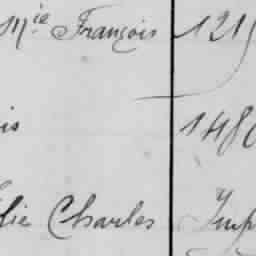 Mie François 121
is 148
lie Charles Imp